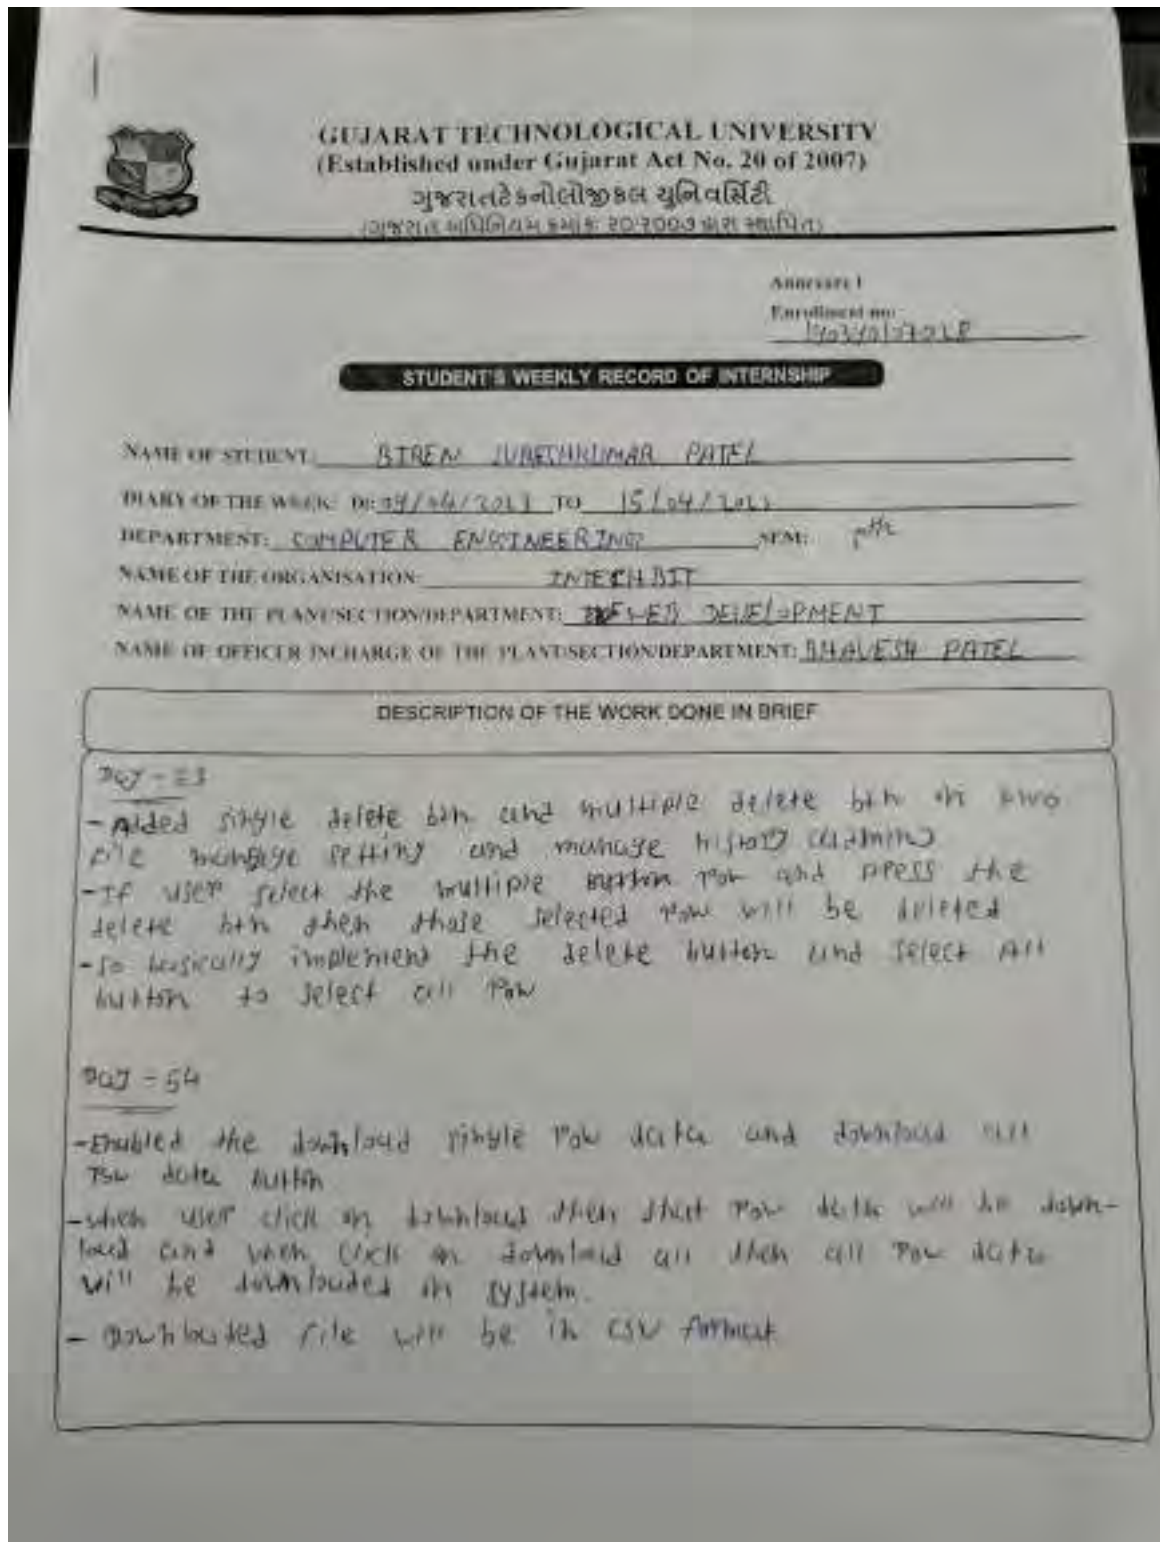 GUJARAT TECHNOLOGICAL UNIVERSITY
(Established under Gujarat Act No. 20 of 2007)
ગુજરાતટેકનોલોજીકલ યુનિવર્સિટી
(ગુજરાત અધિનિયમ ક્રમાંક: ૨૦/૨૦૦૭ દ્વારા સ્થાપિત)
Annexure I
Enrollment no:
STUDENT'S WEEKLY RECORD OF INTERNSHIP
NAME OF STUDENT: BIREN SURESHKUMAR PATEL
DIARY OF THE WEEK: Dt: TO 15/04/
DEPARTMENT: COMPUTER ENGINEERING SEM:
NAME OF THE ORGANISATION: INTECHBIT
NAME OF THE PLANT/SECTION/DEPARTMENT: WEB DEVELOPMENT
NAME OF OFFICER INCHARGE OF THE PLANT/SECTION/DEPARTMENT: BHAVESH PATEL
DESCRIPTION OF THE WORK DONE IN BRIEF
Day - 53
- Added single delete btn and multiple delete btn on two
file manage setting and manage history (admin)
- If user select the multiple row and press the
delete btn then those selected row will be deleted
- So basically implement the delete button and select All
button to select all row
Day - 54
- Enabled the download single row data and download all
row data button
- when user click on download then that row data will be down-
load and when click on download all then all row data
will be downloaded in system.
- Downloaded file will be in CSV format